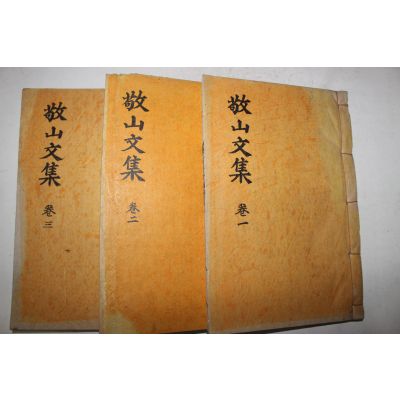 敬山文集
卷一
敬山文集
卷二
敬山文集
卷三